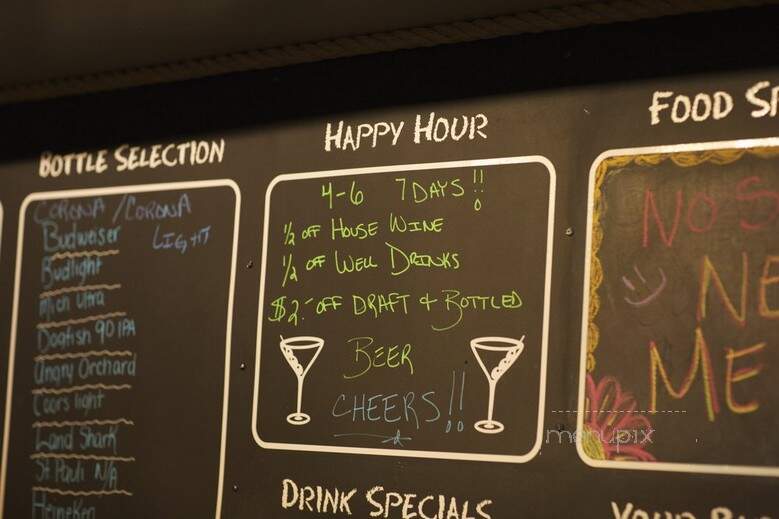 BOTTLE SELECTION
CORONA / CORONA
LIGHT
Budweiser
Budlight
Mich Ultra
Dogfish 90 IPA
Angry Orchard
Coors light
Land Shark
St Pauli N/A
Heineken
HAPPY HOUR
4-6 7 DAYS!!
1/2 OFF HOUSE WINE
1/2 OFF WELL DRINKS
$2.- OFF DRAFT & BOTTLED
BEER
CHEERS!!
DRINK SPECIALS
FOOD SP
NO S
NE
ME
menupix